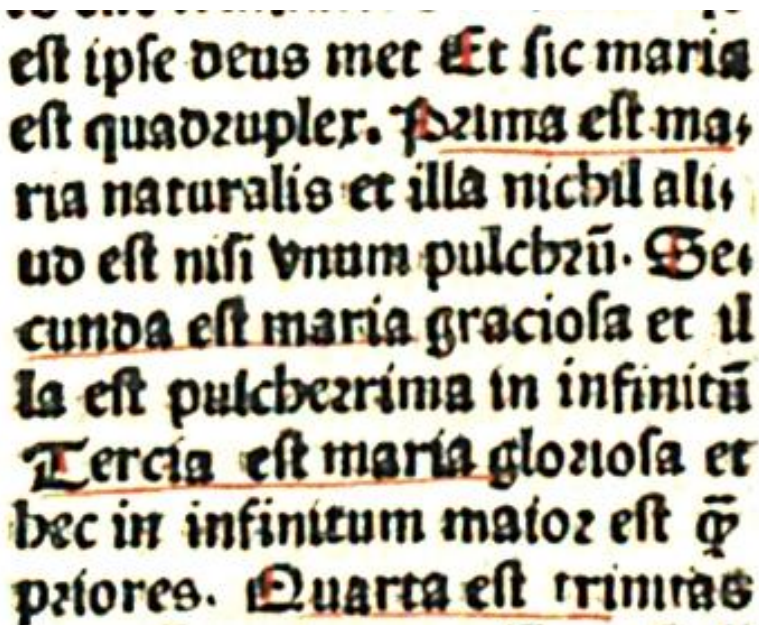 est ipse deus met Et sic maria
est quadruplex. Prima est ma⸗
ria naturalis et illa nichil ali⸗
ud est nisi vnum pulchrū. Se⸗
cunda est maria graciosa et il
la est pulcherrima in infinitū
Tercia est maria gloriosa et
hec in infinitum maior est q̄
priores. Quarta est trinitas